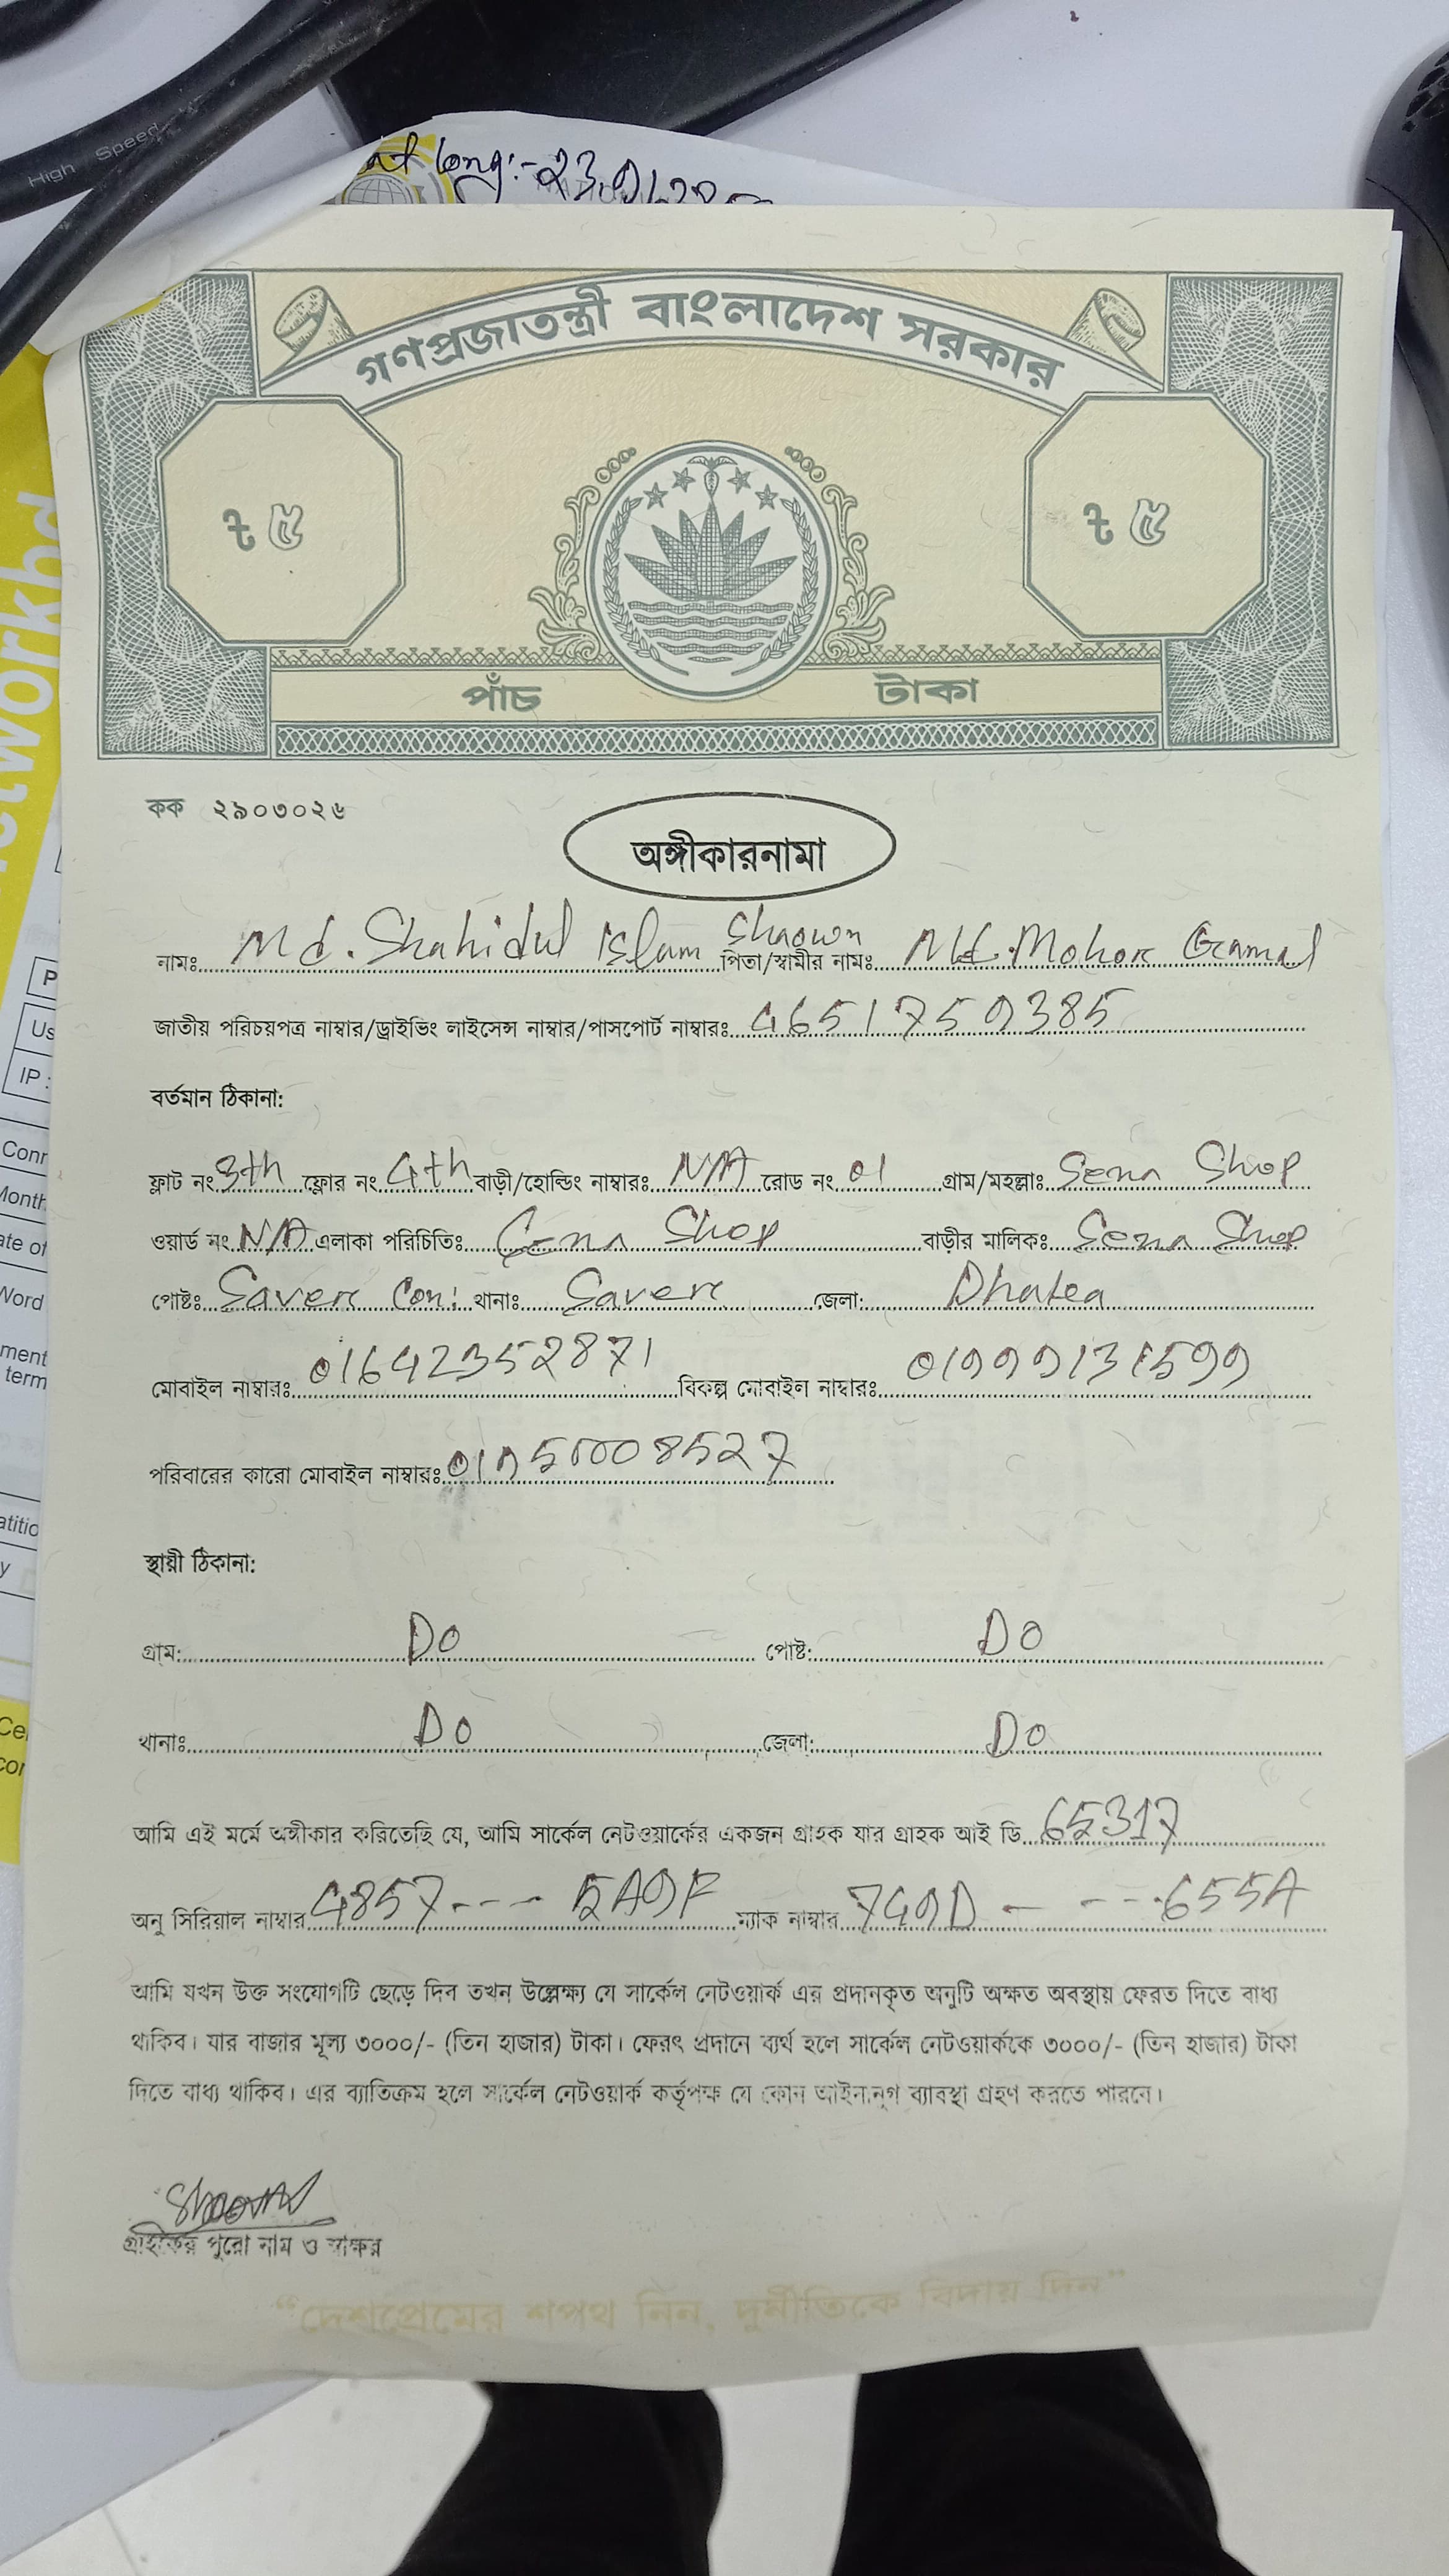 High Speed
long:- 23.9
গণপ্রজাতন্ত্রী বাংলাদেশ সরকার
৳ ৫ ৳ ৫
পাঁচ টাকা
কক ২৯০৩০২৬
অঙ্গীকারনামা
নামঃ Md. Shahidul Islam Shaown পিতা/স্বামীর নামঃ Md. Mohor Gamal
জাতীয় পরিচয়পত্র নাম্বার/ড্রাইভিং লাইসেন্স নাম্বার/পাসপোর্ট নাম্বারঃ 4651759385
বর্তমান ঠিকানা:
ফ্লাট নং 3th ফ্লোর নং 4th বাড়ী/হোল্ডিং নাম্বারঃ N/A রোড নং 01 গ্রাম/মহল্লাঃ Sena Shop
ওয়ার্ড নং N/A এলাকা পরিচিতিঃ Sena Shop বাড়ীর মালিকঃ Sena Shop
পোষ্টঃ Saver Can: থানাঃ Saver জেলা: Dhaka
মোবাইল নাম্বারঃ 01642352871 বিকল্প মোবাইল নাম্বারঃ 01999131599
পরিবারের কারো মোবাইল নাম্বারঃ
স্থায়ী ঠিকানা:
গ্রাম: DO পোষ্ট: DO
থানাঃ DO জেলা: DO
আমি এই মর্মে অঙ্গীকার করিতেছি যে, আমি সার্কেল নেটওয়ার্কের একজন গ্রাহক যার গ্রাহক আই ডি 65317
অনু সিরিয়াল নাম্বার 4857--- 5A9F ম্যাক নাম্বার 749D - ---655A
আমি যখন উক্ত সংযোগটি ছেড়ে দিব তখন উল্লেক্ষ্য যে সার্কেল নেটওয়ার্ক এর প্রদানকৃত অনুটি অক্ষত অবস্থায় ফেরত দিতে বাধ্য
থাকিব। যার বাজার মূল্য ৩০০০/- (তিন হাজার) টাকা। ফেরৎ প্রদানে ব্যর্থ হলে সার্কেল নেটওয়ার্ককে ৩০০০/- (তিন হাজার) টাকা
দিতে বাধ্য থাকিব। এর ব্যাতিক্রম হলে সার্কেল নেটওয়ার্ক কর্তৃপক্ষ যে কোন আইনানুগ ব্যাবস্থা গ্রহণ করতে পারনে।
Shaown
গ্রাহকের পুরো নাম ও সাক্ষর
“দেশপ্রেমের শপথ নিন, দুর্নীতিকে বিদায় দিন”